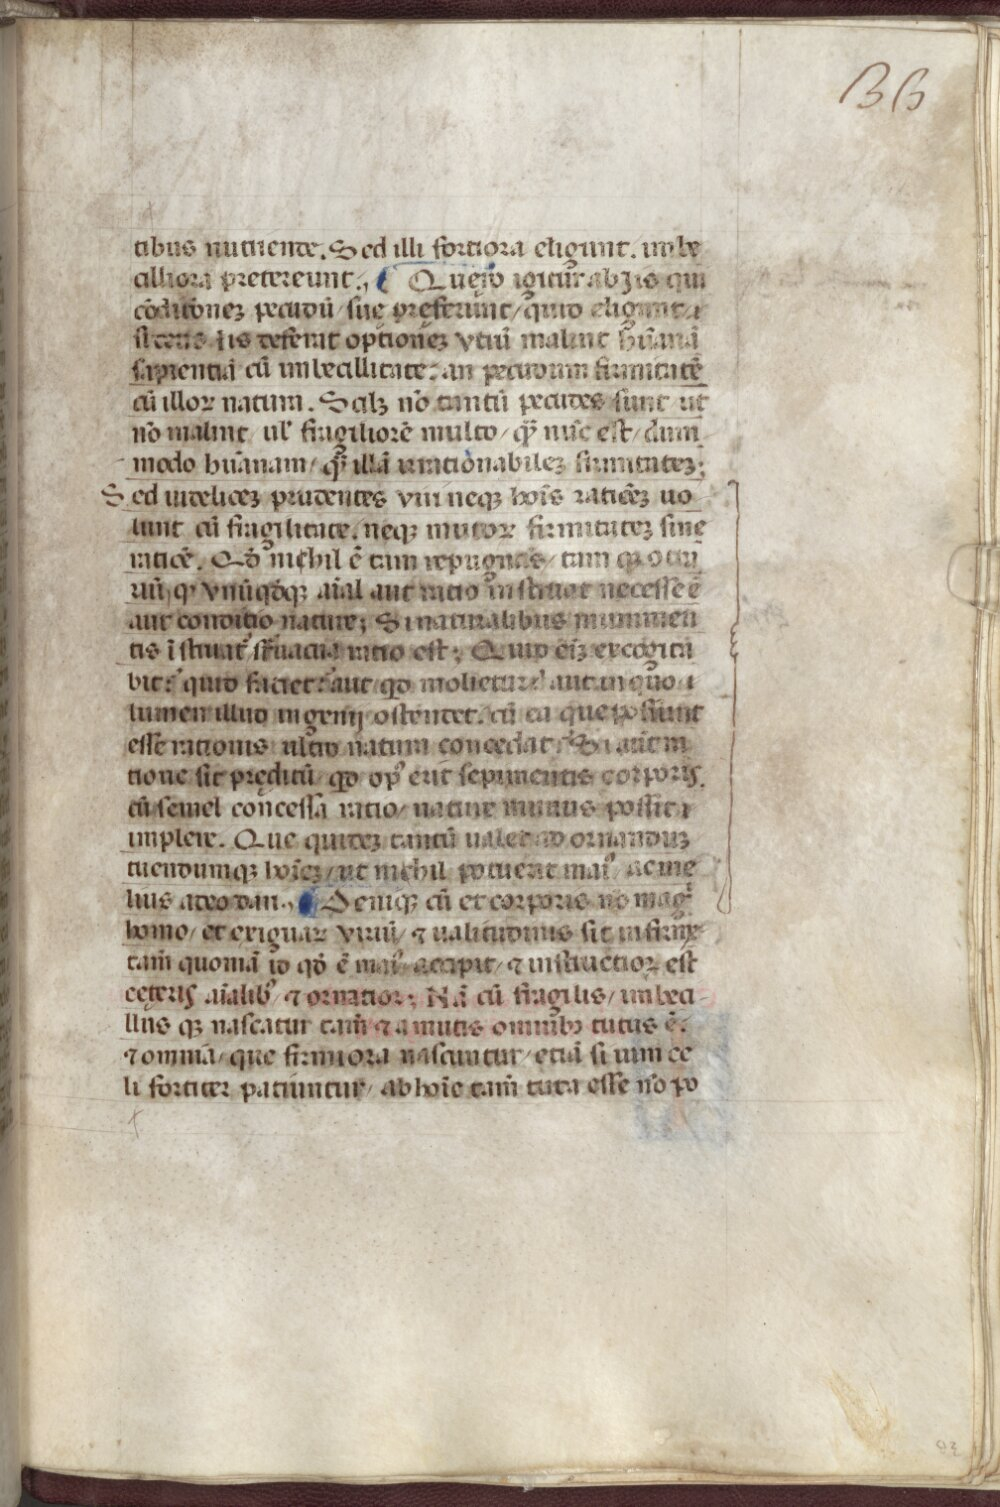 BB
tibus nutriente. Sed illi fortiora eligunt. imbe
cilliora pretereunt., Quero igitur ab Jis qui
cōditionez pecudū sue preferunt/ quid eligant i
si deus Jis deferat optionez vtrū malint hūanā
sapientiā cū imbecillitate: an pecudum firmitatē
cū illoꝝ natura. Scilꝫ nō tantū pecudes sunt ut
nō malint/ ul' fragiliorē multo/ qꝫ nūc est/ dum
modo hūanam/ qꝫ illā irrationabilez firmitatez;
Sed uidelicez prudentes viri neqꝫ hoīs ratiōez uo
lunt cū fragilitate. neqꝫ mutoꝝ firmitatez sine
ratiōe. Qd' nichil ē tam repugnās/ tam
qꝫ vnūqdqꝫ aīal aut ratio instruat necesse ē
aut conditio nature; Si naturalibus munimen
tis īstruat' sūuacua ratio est; Quid eīz excogita
bit: quid faciet: aut qd molietur: aut in quo i
lumen illud ingenij ostendet. cū ea que possunt
esse rationis ultro natura concedat: Si aūt ra
tione sit preditū/ qd op' erit sepimentis corporis.
cū semel concessa ratio/ nature munus possit i
implere. Que quidez tantū ualet ad ornanduz
tuendumqꝫ hoīez/ ut nichil potuerit mai'/ ac me
lius a deo dari., Deniqꝫ cū et corporis nō magͥ
homo/ et exiguaꝝ viriū/ ⁊ ualitudinis sit infirme
tam̄ quoniā id qd' ē mai' accepit/ ⁊ instructior est
ceteris aīalib' ⁊ ornatior; Nā cū fragilis/ imbeci-
llus qꝫ nascatur tam̄ ⁊ a mutis omnibꝫ tutus ē.
⁊ omnia/ que firmiora nascuntur/ etiā si uim ce
li fortiter patiuntur/ ab hoīe tam̄ tuta esse nō po